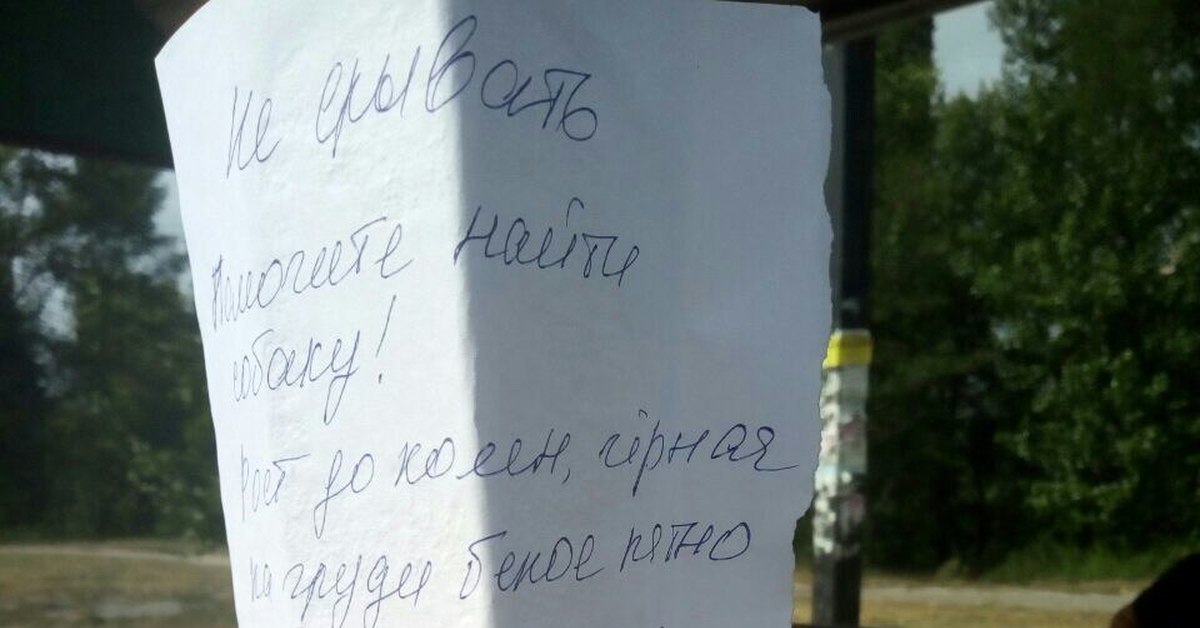 Не срывать
Помогите найти
собаку!
Рост до колен, чёрная
на груди белое пятно